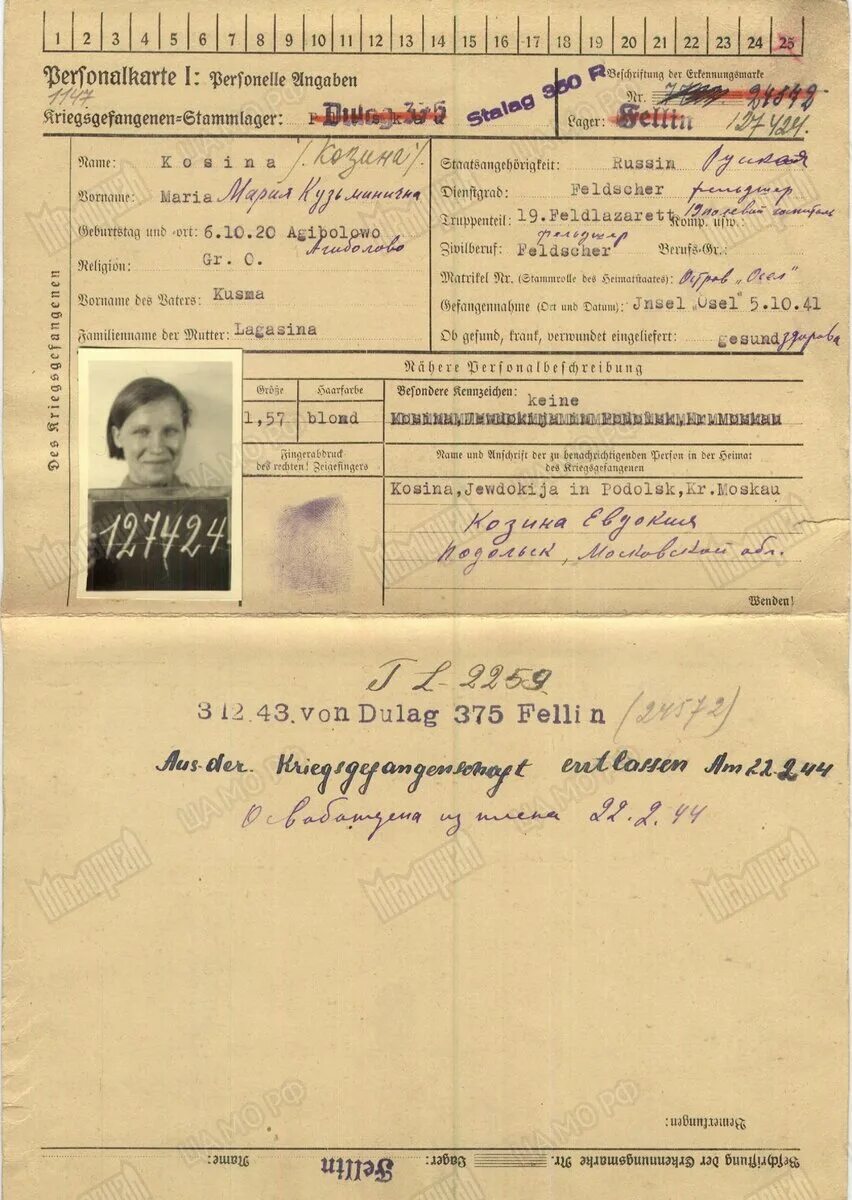 1 2 3 4 5 6 7 8 9 10 11 12 13 14 15 16 17 18 19 20 21 22 23 24 25
Personalkarte I: Personelle Angaben
1147.
Kriegsgefangenen=Stammlager: Dulag 375 Stalag 350 R
Beschriftung der Erkennungsmarke
Nr. 24542
Lager: Fellin 127424.
Des Kriegsgefangenen
Name: Kosina /Козина/.
Vorname: Maria Мария Кузьминична
Geburtstag und =ort: 6.10.20 Agibolowo
Агиболово
Religion: Gr. O.
Vorname des Vaters: Kusma
Familienname der Mutter: Lagasina
Staatsangehörigkeit: Russin Руская
Dienstgrad: Feldscher фельджер
Truppenteil: 19.Feldlazarett Komp. usw.: 19 полевой госпиталь
фельджер
Zivilberuf: Feldscher Berufs=Gr.:
Matrikel Nr. (Stammrolle des Heimatstaates): Остров „Осел"
Gefangennahme (Ort und Datum): Jnsel „Ösel" 5.10.41
Ob gesund, krank, verwundet eingeliefert: gesund здорова
Nähere Personalbeschreibung
Größe Haarfarbe Besondere Kennzeichen:
keine
1,57 blond Kosina, Jewdokija in Podolsk, Kr. Moskau
Fingerabdruck
des rechten! Zeigefingers
Name und Anschrift der zu benachrichtigenden Person in der Heimat
des Kriegsgefangenen
Kosina, Jewdokija in Podolsk, Kr. Moskau
Козина Евдокия
Подольск, Московской обл.
127424
Wenden!
T L-2259
3 12.43. von Dulag 375 Fellin (24572)
Aus der Kriegsgefangenschaft entlassen Am 22.2.44
Освобождена из плена 22.2.44
Bemerkungen:
Beschriftung der Erkennungsmarke Nr. Lager: Fellin Name:
Мемориал
ЦАМО РФ